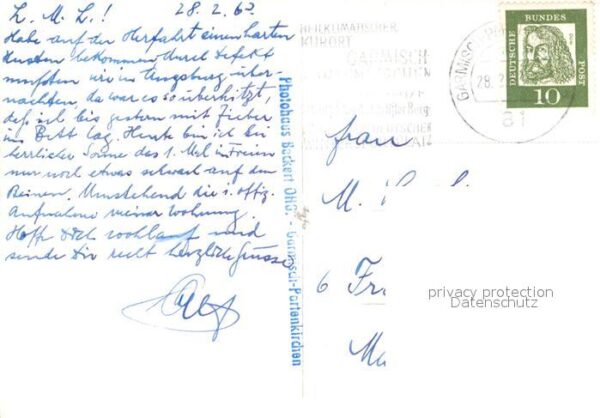 L. M. L.! 28.2.63
Habe auf der Herfahrt einen harten
Husten bekommen, durch Defekt
mußten wir in Augsburg über-
nachten, da war es so überhitzt,
daß ich bis gestern mit Fieber
im Bett lag. Heute bin ich bei
herrlicher Sonne das 1. Mal im Freien
nur noch etwas schwach auf den
Beinen. Umstehend die 1. offiz.
Aufnahme meiner Wohnung.
Hoffe Dich wohlauf und
sende Dir recht herzliche Grüsse
Photohaus Beckert OHG. - Garmisch-Partenkirchen
HEILKLIMATISCHER
KURORT
GARMISCH
PARTENKIRCHEN
GARMISCH-PA
28.
81
DEUTSCHE BUNDES POST
10
Frau
M.
6 Fr
Ma
privacy protection
Datenschutz